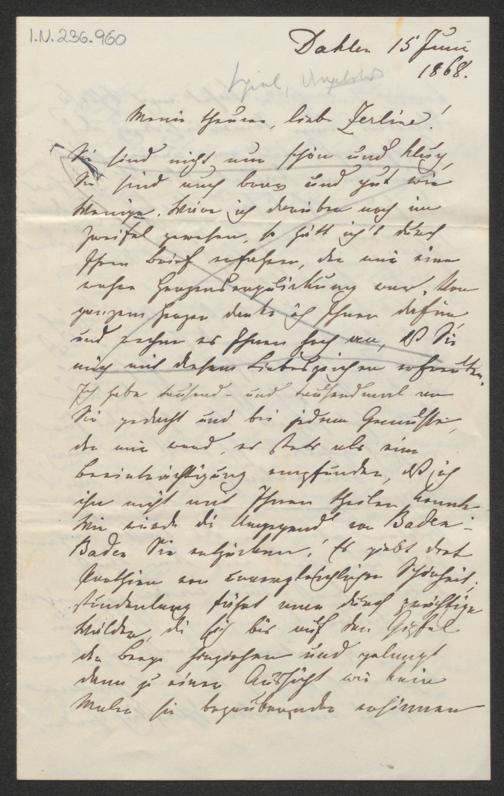 I.N. 236.960
Dahlen 15 Juni
1868.
Meine theuere, liebe Zerline!
Sie sind nicht nur schön und klug,
Sie sind auch brav und gut wie
Wenige. Wäre ich darüber noch im
Zweifel gewesen, so hätt ich's durch
Ihren Brief erfahren, der mir eine
wahre Herzenserquickung war. Von
ganzem Herzen danke ich Ihnen dafür
und rechne es Ihnen hoch an, daß Sie
mich mit diesem Liebeszeichen erfreuten.
Ich habe tausend- und tausendmal an
Sie gedacht und bei jedem Genusse,
der mir ward, es stets als eine
Beeinträchtigung empfunden, daß ich
ihn nicht mit Ihnen theilen konnte.
Wie würde die Umgegend von Baden-
Baden Sie entzücken! Es giebt dort
Parthien von unvergleichlicher Schönheit.
stundenlang fährt man durch prächtige
Wälder, die sich bis auf den Gipfel
der Berge hinziehen und gelangt
dann zu einer Aussicht wie kein
Maler sie bezaubernder ersinnen